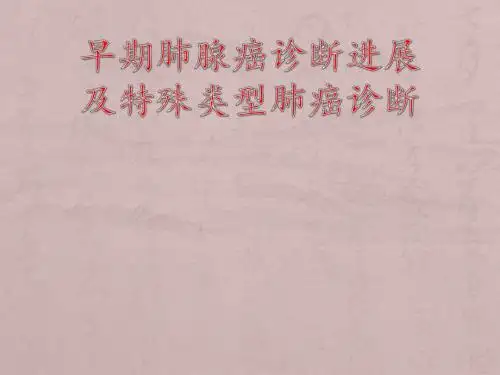 早期肺腺癌诊断进展
及特殊类型肺癌诊断